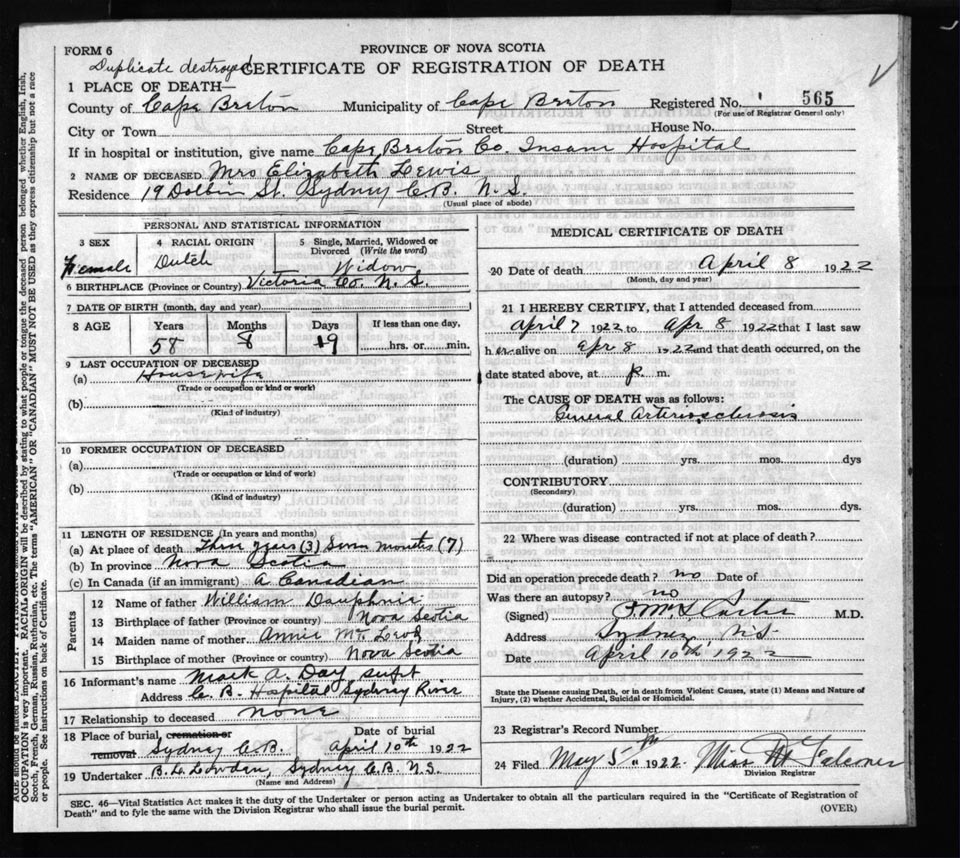 FORM 6
PROVINCE OF NOVA SCOTIA
Duplicate destroyed
CERTIFICATE OF REGISTRATION OF DEATH
1 PLACE OF DEATH—
County of Cape Breton Municipality of Cape Breton Registered No. 565
(For use of Registrar General only)
City or Town Street House No.
If in hospital or institution, give name Cape Breton Co. Insane Hospital
2 NAME OF DECEASED Mrs Elizabeth Lewis
Residence 19 Dolbin St. Sydney C.B. N.S.
(Usual place of abode)
PERSONAL AND STATISTICAL INFORMATION
3 SEX 4 RACIAL ORIGIN 5 Single, Married, Widowed or Divorced (Write the word)
Female Dutch Widow
6 BIRTHPLACE (Province or Country) Victoria Co. N.S.
7 DATE OF BIRTH (month, day and year)
8 AGE Years Months Days If less than one day,
58 8 19 hrs. or min.
9 LAST OCCUPATION OF DECEASED
(a) Housewife
(Trade or occupation or kind or work)
(b)
(Kind of industry)
10 FORMER OCCUPATION OF DECEASED
(a)
(Trade or occupation or kind of work)
(b)
(Kind of industry)
11 LENGTH OF RESIDENCE (In years and months)
(a) At place of death Three years (3) Seven months (7)
(b) In province Nova Scotia
(c) In Canada (if an immigrant) A Canadian
Parents
12 Name of father William Dauphnie
13 Birthplace of father (Province or country) Nova Scotia
14 Maiden name of mother Annie
15 Birthplace of mother (Province or country) Nova Scotia
16 Informant's name Mark A. Day, supt
Address C. B. Hospital Sydney River
17 Relationship to deceased none
18 Place of burial, cremation or removal Date of burial
Sydney C.B. April 10th 1922
19 Undertaker B. L. Lowden, Sydney C.B. N.S.
(Name and Address)
MEDICAL CERTIFICATE OF DEATH
20 Date of death April 8 1922
(Month, day and year)
21 I HEREBY CERTIFY, that I attended deceased from
April 7 1922 to Apr 8 1922 that I last saw
her alive on Apr 8 1922 and that death occurred, on the
date stated above, at p m.
The CAUSE OF DEATH was as follows:
General Arteriosclerosis
(duration) yrs. mos. dys
CONTRIBUTORY
(Secondary)
(duration) yrs. mos. dys.
22 Where was disease contracted if not at place of death?
Did an operation precede death? no Date of
Was there an autopsy? no
(Signed) M.D.
Address Sydney, N.S.
Date April 10th 1922
State the Disease causing Death, or in death from Violent Causes, state (1) Means and Nature of
Injury, (2) whether Accidental, Suicidal or Homicidal.
23 Registrar's Record Number
24 Filed May 5th 1922 Miss
Division Registrar
SEC. 46—Vital Statistics Act makes it the duty of the Undertaker or person acting as Undertaker to obtain all the particulars required in the "Certificate of Registration of
Death" and to fyle the same with the Division Registrar who shall issue the burial permit. (OVER)
OCCUPATION is very important. RACIAL ORIGIN will be described by stating to what people or tongue the deceased person belonged whether English, Irish,
Scotch, French, German, Russian, Ruthenian, etc. The terms "AMERICAN" OR "CANADIAN" MUST NOT BE USED as they express citizenship but not a race
or people. See instructions on back of Certificate.